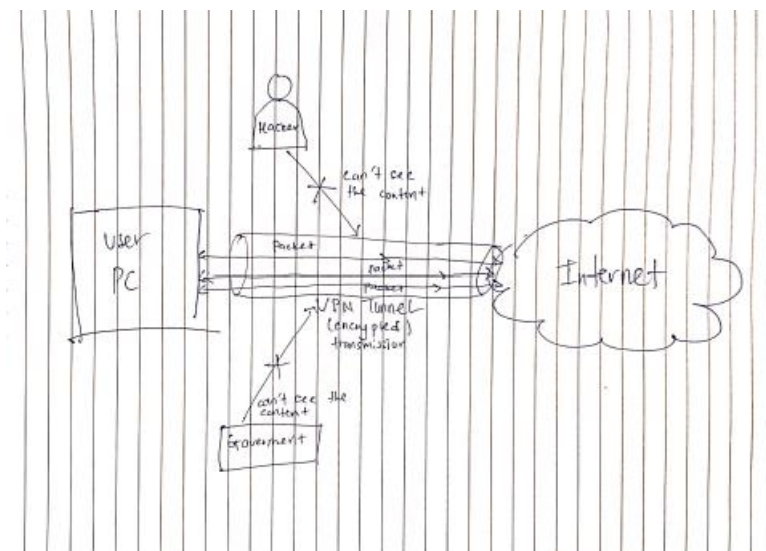 Hacker
can't see
the content
User
PC
Packet
Packet
Packet
Internet
VPN Tunnel
(encrypted)
transmission
can't see the
content
Goverment